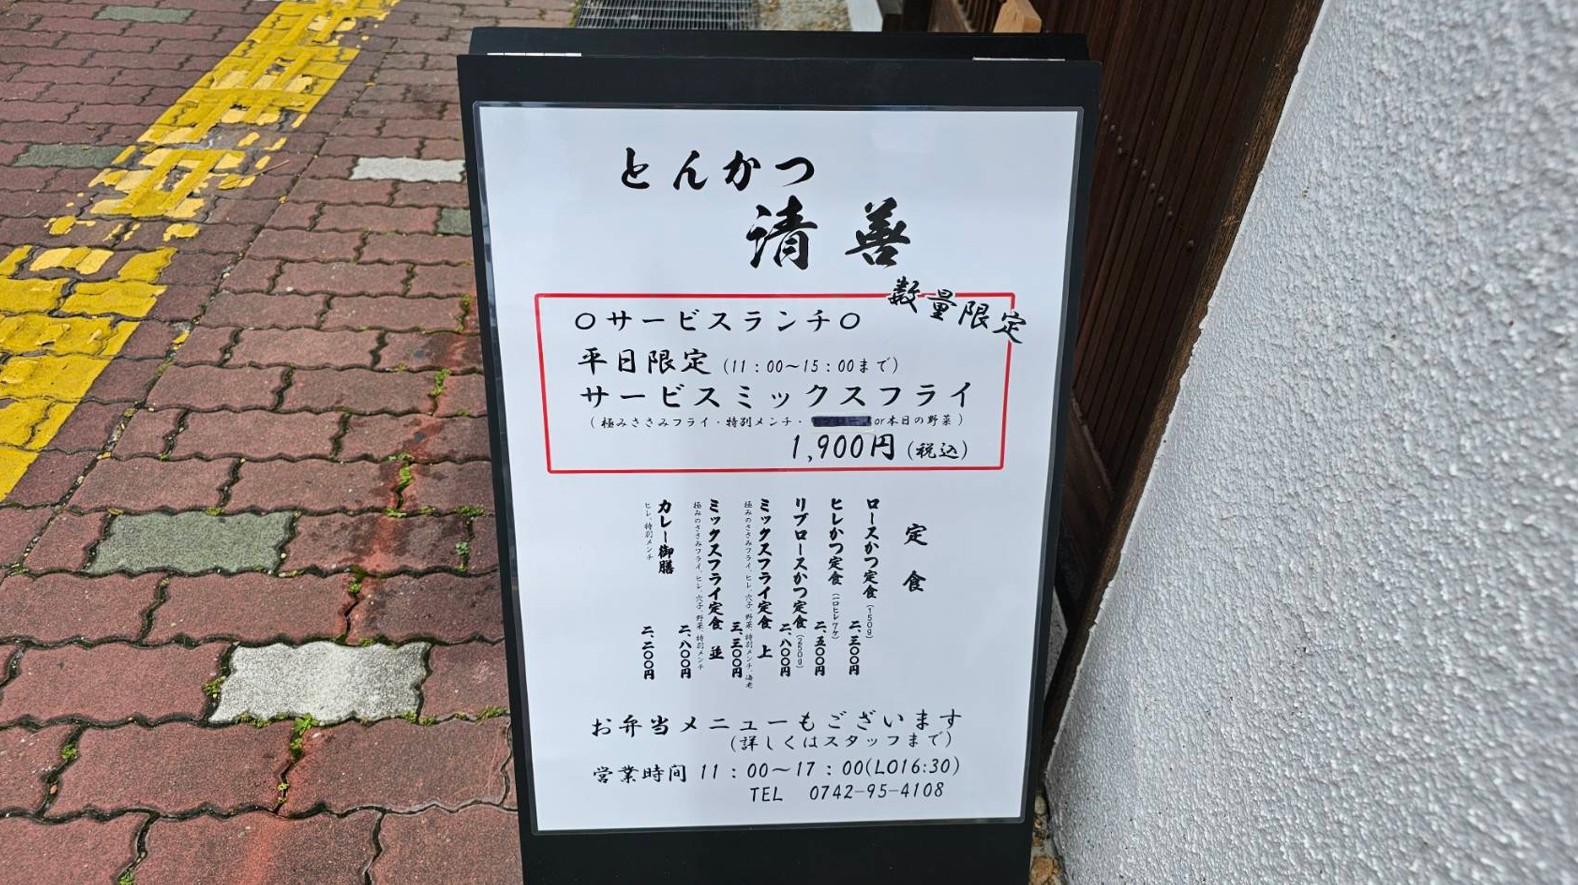 とんかつ
清善
数量限定
○サービスランチ○
平日限定(11:00～15:00まで)
サービスミックスフライ
(極みささみフライ・特別メンチ・ or本日の野菜)
1,900円(税込)
定食
ロースかつ定食(150g) 二、三〇〇円
ヒレかつ定食(一口ヒレ7ケ) 二、五〇〇円
リブロースかつ定食(250g) 二、八〇〇円
ミックスフライ定食 上 三、三〇〇円
極みのささみフライ、ヒレ、穴子、野菜、特別メンチ、海老
ミックスフライ定食 並 二、八〇〇円
極みのささみフライ、ヒレ、穴子、野菜、特別メンチ
カレー御膳 二、二〇〇円
ヒレ、特別メンチ
お弁当メニューもございます
(詳しくはスタッフまで)
営業時間 11:00～17:00(LO16:30)
TEL 0742-95-4108